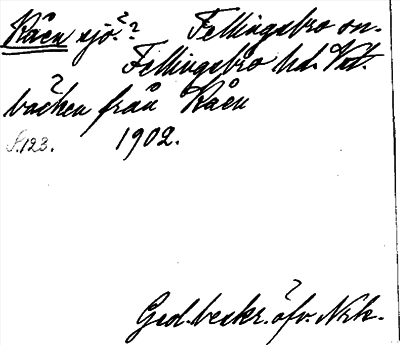 Råen sjö?? Fellingsbro sn.
Fellingsbro hd. Vst.
bäcken från Råen
S.123. 1902.
Ged. beskr. öfv. Nrk.